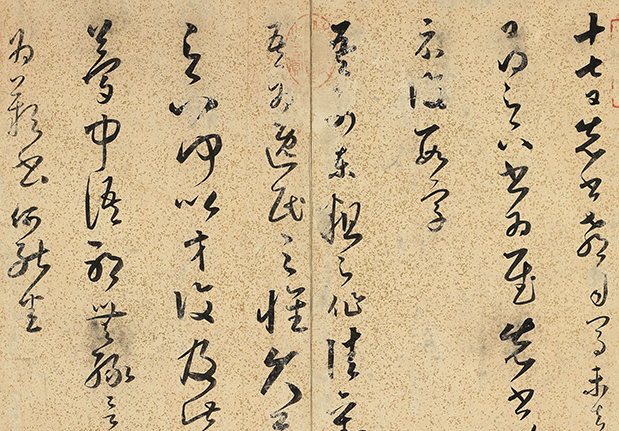 十七日先書郗司馬未去
日得足下書為慰先書
示復數字
吾前東粗足作佳觀
吾為逸民之懷久矣
足下何以等復及此
夢中語耶無緣言
為歎書何能悉